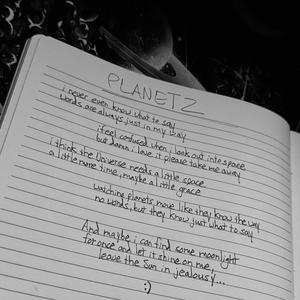 PLANETZ
i never even know what to say
words are always just in my way
i feel confused when i look out into space
but damn i love it, please take me away
i think the Universe needs a little space
a little more time, maybe a little grace
watching planets move like they know the way
no words, but they know just what to say
And maybe i can find some moonlight
for once and let it shine on me,
leave the Sun in jealousy...
:)